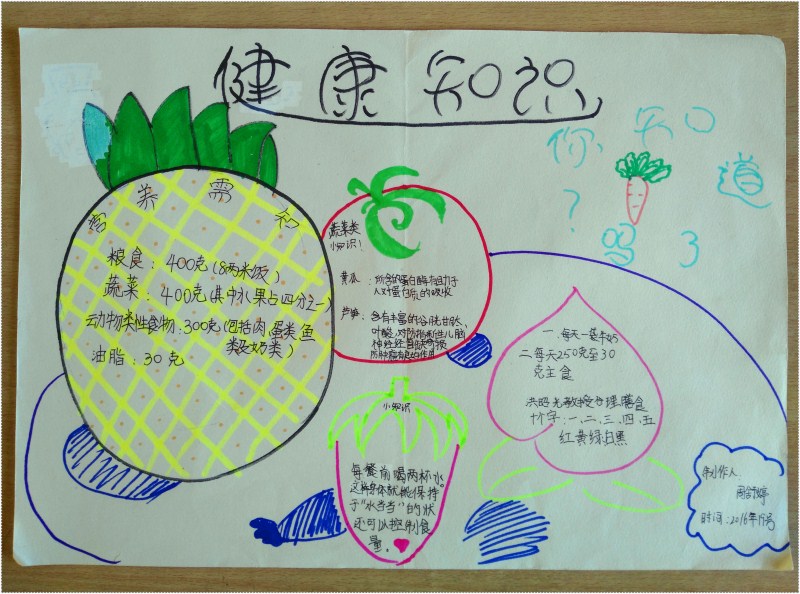 健康知识
你知道
吗?
营养需知
粮食：400克(8两米饭)
蔬菜：400克(其中水果占四分之一)
动物类性食物：300克(包括肉蛋类鱼
类及奶类)
油脂：30克
蔬菜类
小知识！
黄瓜：所含的蛋白酶有助于
人对蛋白质的吸收
芦笋：含有丰富的谷胱甘肽、
叶酸，对防止新生儿脑
神经经管缺损
防肿瘤有良的作用
小知识
每餐前喝两杯水。
这样身体就能保持
于"水当当"的状
还可以控制食
量。
一.每天一袋牛奶
二每天250克至30
克主食
洪昭光教授合理膳食
十个字：一、二、三、四、五
红黄绿白黑
制作人
周舒婷
时间：2016年